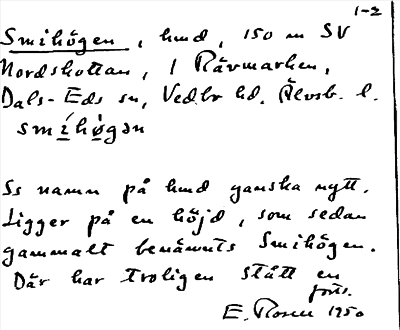 1-2
Smihögen, hmd, 150 m SV
Nordskottan, i Rävmarken,
Dals-Eds sn, Vedbo hd. Älvsb. l.
smíhø̀gən
Ss namn på hmd ganska nytt.
Ligger på en höjd, som sedan
gammalt benämnts Smihögen.
Där har troligen stått en
forts.
E. Rosen 1950